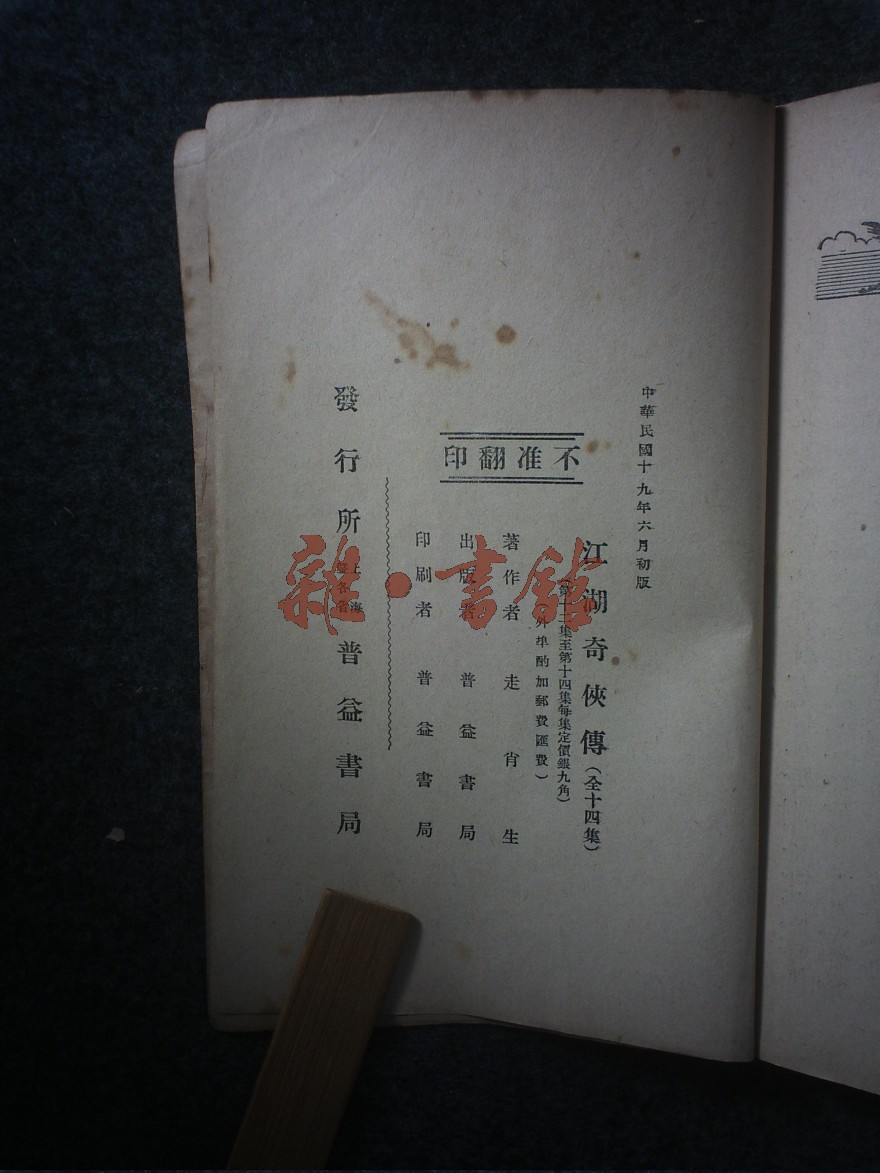 中華民國十九年六月初版
江湖奇俠傳(全十四集)
(第十二集至第十四集每集定價銀九角)
外埠酌加郵費匯費)
不准翻印
著作者 走肖生
出版者 普益書局
印刷者 普益書局
發行所 上海 普益書局
雜·書館